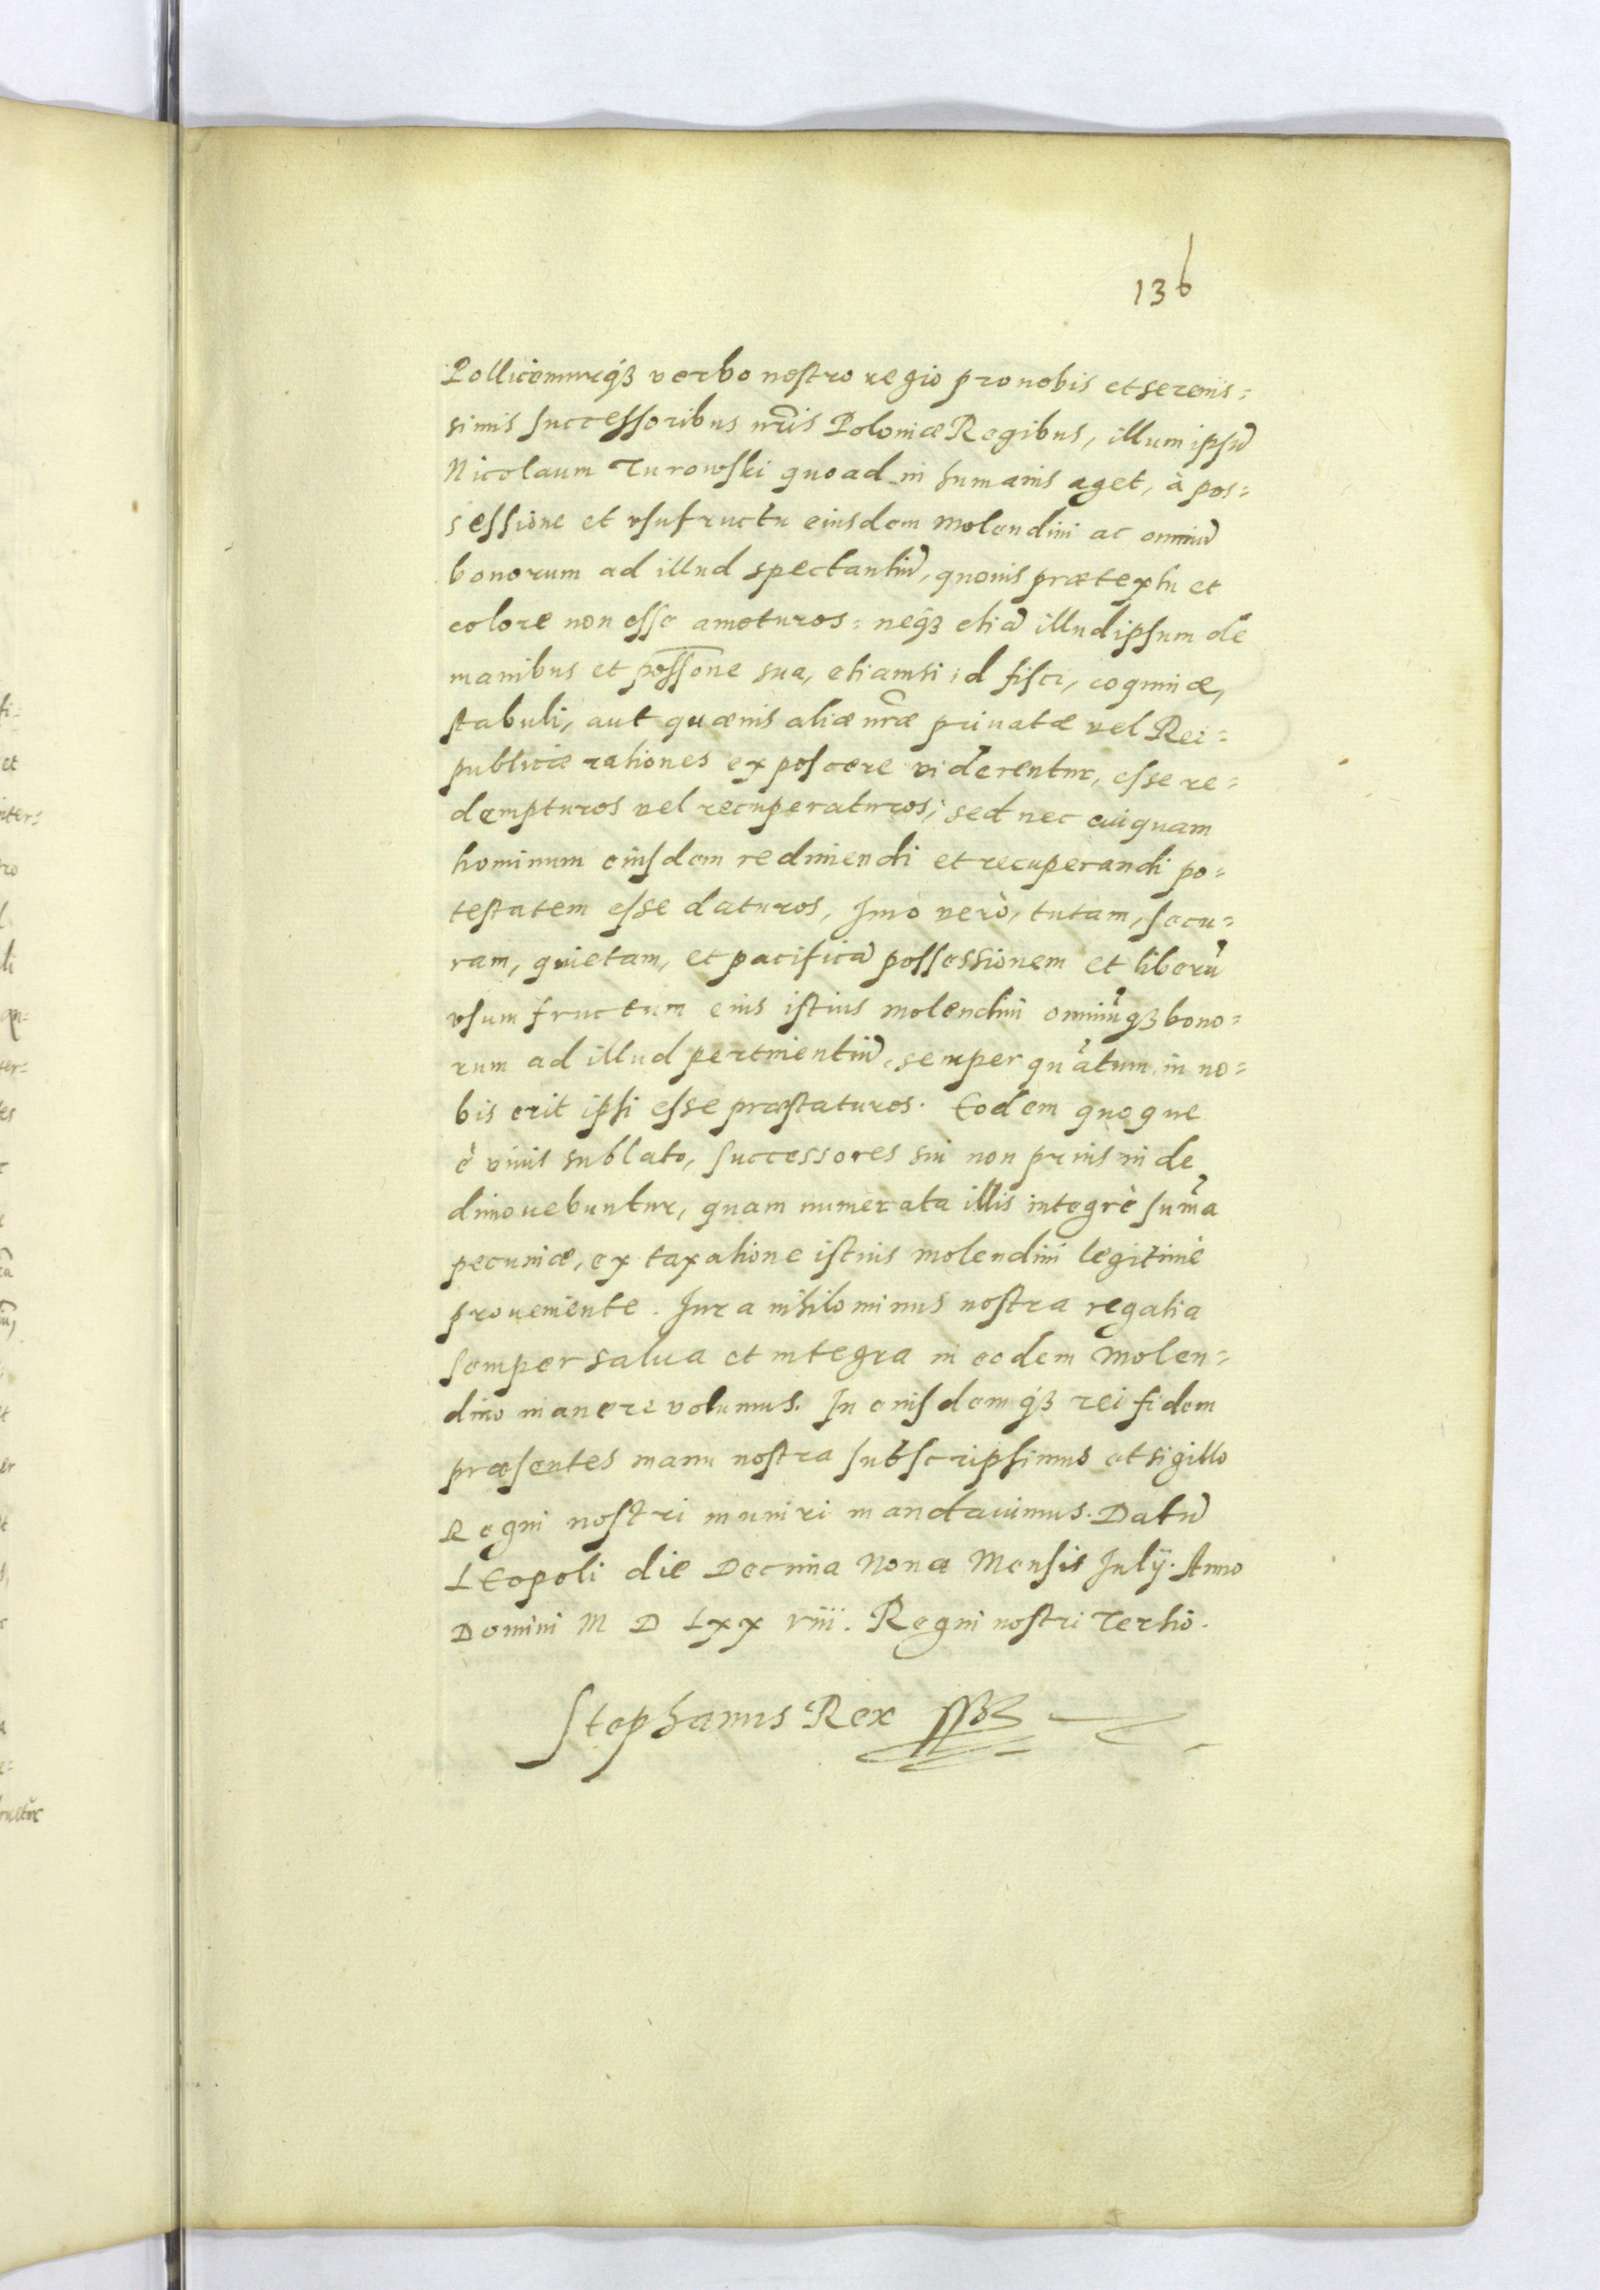 136
Pollicemurq₃ verbo nostro regio pro nobis et serenis=
simis successoribus nr̃is Poloniæ Regibus, illum ipsũ
Nicolaum Turowski quoad in humanis aget, à pos=
sessione et vsufructu eiusdem Molendini ac omniũ
bonorum ad illud spectantiũ, quouis prætextu et
colore non esse amoturos: neq₃ etiã illud ipsum de
manibus et possone sua, etiamsi id fisci, coquinæ,
stabuli, aut quæuis aliæ nr̃æ priuatæ vel Rei=
publicæ rationes exposcere viderentur, esse re=
dempturos vel recuperaturos; sed nec cuiquam
hominum eiusdem redimendi et recuperandi po=
testatem esse daturos, Imò verò, tutam, secu=
ram, quietam, et pacificã possessionem et liberũ
vsumfructum eius istius molendini omniũq₃ bono=
rum ad illud pertinentiũ, semper quãtum in no=
bis erit ipsi esse præstaturos. Eodem quoque
è viuis sublato, successores sui non prius inde
dimouebuntur, quam numerata illis integrè sum̃a
pecuniæ, ex taxatione istius molendini legitimè
proueniente. Iura nihilominus nostra regalia
semper salua et integra in eodem Molen=
dino manere volumus. In eiusdemq₃ rei fidem
præsentes manu nostra subscripsimus et sigillo
Regni nostri muniri mandauimus. Datũ
LEopoli die Decima Nona Mensis Julÿ. Anno
Domini M D Lxx viii. Regni nostri Tertio.
Stephanus Rex